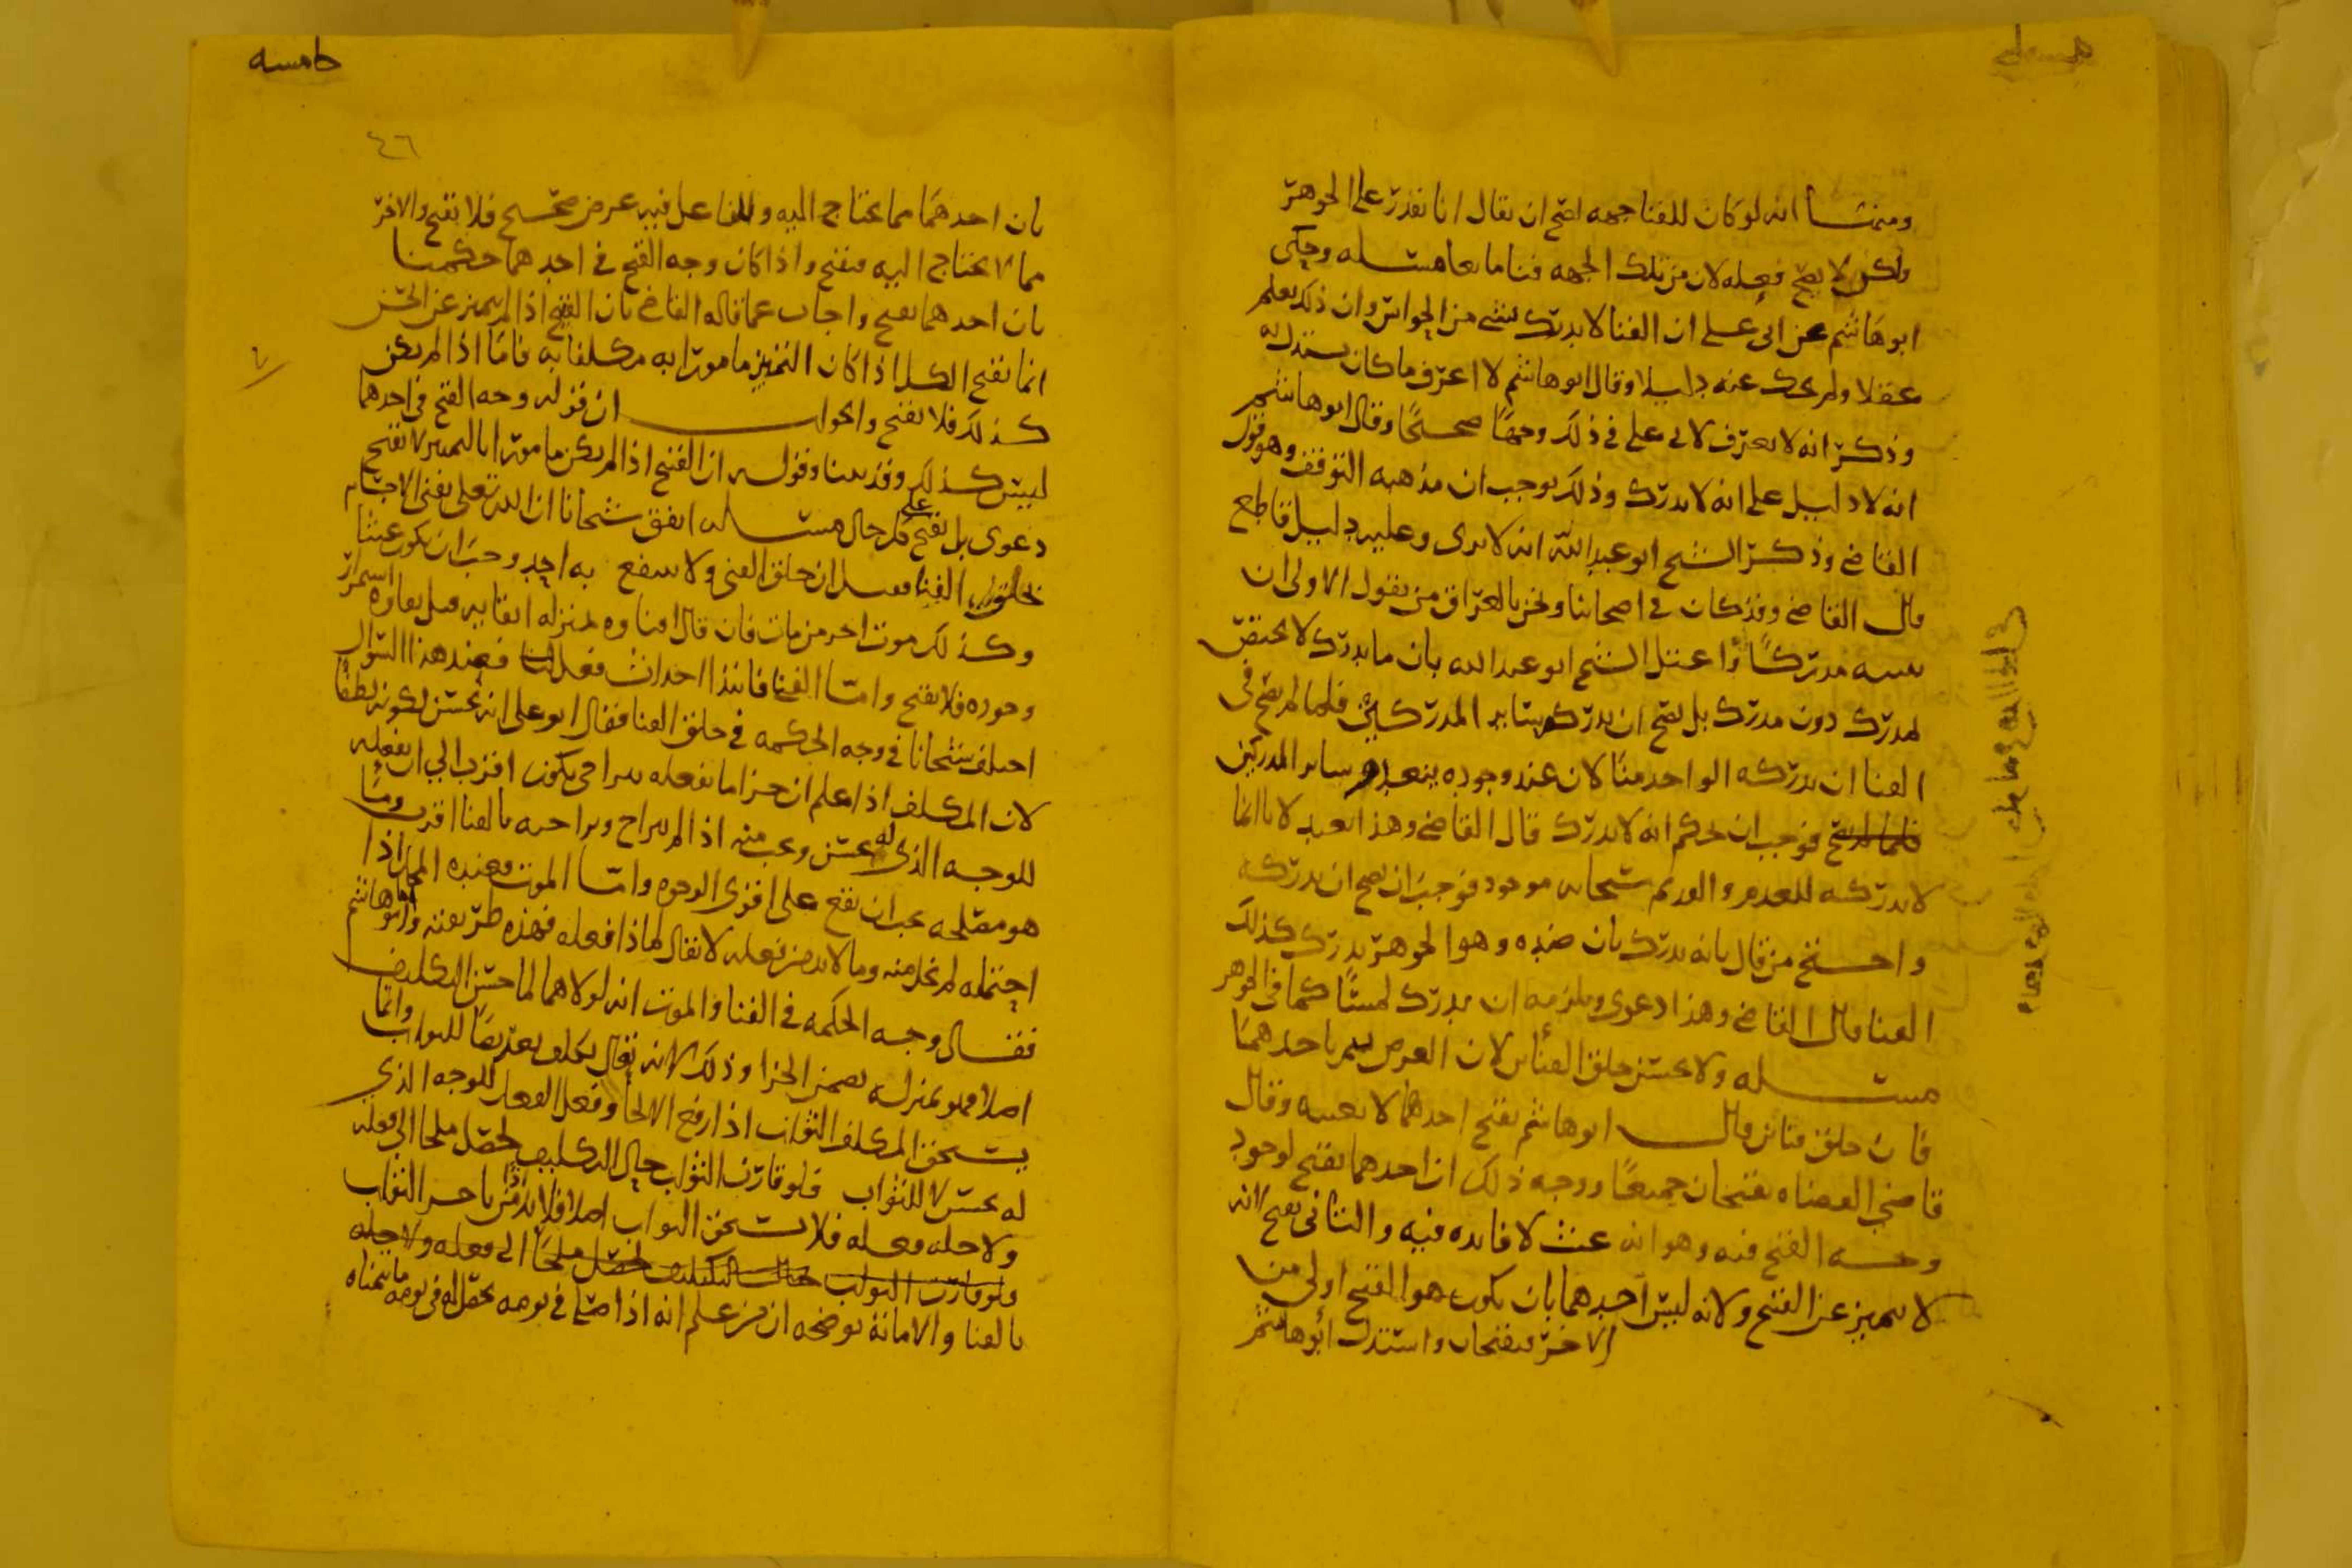 ومنها انه لو كان للفنا جهه لصح ان يقال انا نقدر على الجوهر
ولكن لا يصح فعله لان من تلك الجهه فناما نعا مسله وحكى
ابو هاشم عن ابى على ان الفنا لا يدرك بشى من الحواس وان ذلك يعلم
عقلا ولم يحك عنه دليلا وقال ابو هاشم لا اعرف ما كان يستدل به
وذكر انه لا يعرف لابى على فى ذلك وجها صحيحا وقال ابو هاشم
انه لا دليل على انه لا يدرك وذلك يوجب ان مذهبه التوقف وهو قول
القاضى وذكر الشيخ ابو عبدالله انه لا يرى وعليه دليل قاطع
قال القاضى وقد كان فى اصحابنا ونحن بالعراق من يقول الاولى ان
مدركا واعتل الشيخ ابو عبد الله بان ما يدرك لا يختص
لمدرك دون مدرك بل يصح ان يدركه ساير المدركين فلما لم يصح فى
الفنا ان يدركه الواحد منا لان عند وجوده ينعدم ساير المدركين
فوجب ان نحكم انه لا يدرك قال القاضى وهذا بعيد لانا انما
لا ندركه للعدم والقديم سبحانه موجود فوجب ان يصح ان يدركه
واحتج من قال بانه يدرك بان ضده وهو الجوهر يدرك كذلك
الفنا قال القاضى وهذا دعوى ويلزمه ان يدرك لمسا كما فى الجوهر
مسله ولا يحسن خلق الفنائين لان الغرض يتم باحدهما
فان خلق فنائين قال ابو هاشم يقبح احدهما لا بعينه وقال
قاضى القضاه يقبحان جميعا ووجه ذلك ان احدهما يقبح لوجود
وجه القبح فيه وهو انه عبث لا فايده فيه والثانى يقبح لانه
لا يتميز عن القبح ولانه ليس احدهما بان يكون هو القبح اولى من
الاخر فيقبحان واستدل ابو هاشم
خامسه
٤٦
بان احدهما مما يحتاج اليه وللفاعل فيه غرض صحيح فلا يقبح والاخر
مما لا يحتاج اليه فيقبح واذا كان وجه القبح فى احدهما حكمنا
بان احدهما يقبح واجاب عما قاله القاضى بان القبح اذا لم يتميز عن الحسن
انما يقبح الكل اذا كان التمييز مامورا به مكلفا به فاما اذا لم يكن
كذلك فلا يقبح والجواب ان قوله وجه القبح فى احدهما
ليس كذلك وقد بينا وقوله ان القبح اذا لم يكن مامورا بالتمييز لا يقبح
دعوى بل يقبح على كل حال مسله اتفق شيخانا ان الله تعلى يفنى الاجسام
بخلق الفنا فقيل ان خلق الفنى ولا ينتفع به احد وجب ان يكون عبثا
وكذلك موت اخر من مات فان قال افناوه بمنزله ابقايه قيل بقاوه استمرار
وجوده فلا يقبح واما الفنا فابتدا احداث فعل فعند هذا السوال
اختلف شيخانا فى وجه الحكمه فى خلق الفنا فقال ابو على انه يحسن لكونه لطفا
لان المكلف اذا علم ان جزا ما يفعله يتراخى يكون اقرب الى ان يفعله
للوجه الذى له يحسن ويجب منه اذا لم يتراخ وتراخيه بالفنا اقرب وما
هو مصلحه يجب ان يقع على اقوى الوجوه واما الموت فعنده المحل اذا
احتمله لم يخل منه وما لا بد من فعله لا يقال لماذا فعله فهذه طريقته وابو هاشم
فقال وجه الحكمه فى الفنا والموت انه لولاهما لما حسن التكليف
اصلا فهو بمنزله تضمن الجزا وذلك لانه تعالى يكلف تعريضا للثواب وانما
يستحق المكلف الثواب اذا ارتفع الالجا وفعل الفعل للوجه الذى
له يحسن لا للثواب فلو قارن الثواب حال التكليف لحصل ملجا الى فعله
ولاجله فعله فلا يستحق الثواب اصلا فلا بد اذا من تاخير الثواب
ولو قارن الثواب حال التكليف لحصل ملجا الى فعله ولاجله
بالفنا والاماتة يوضحه ان من علم انه اذا صلى فى يومه يحصل له فى يومه ما يتمناه